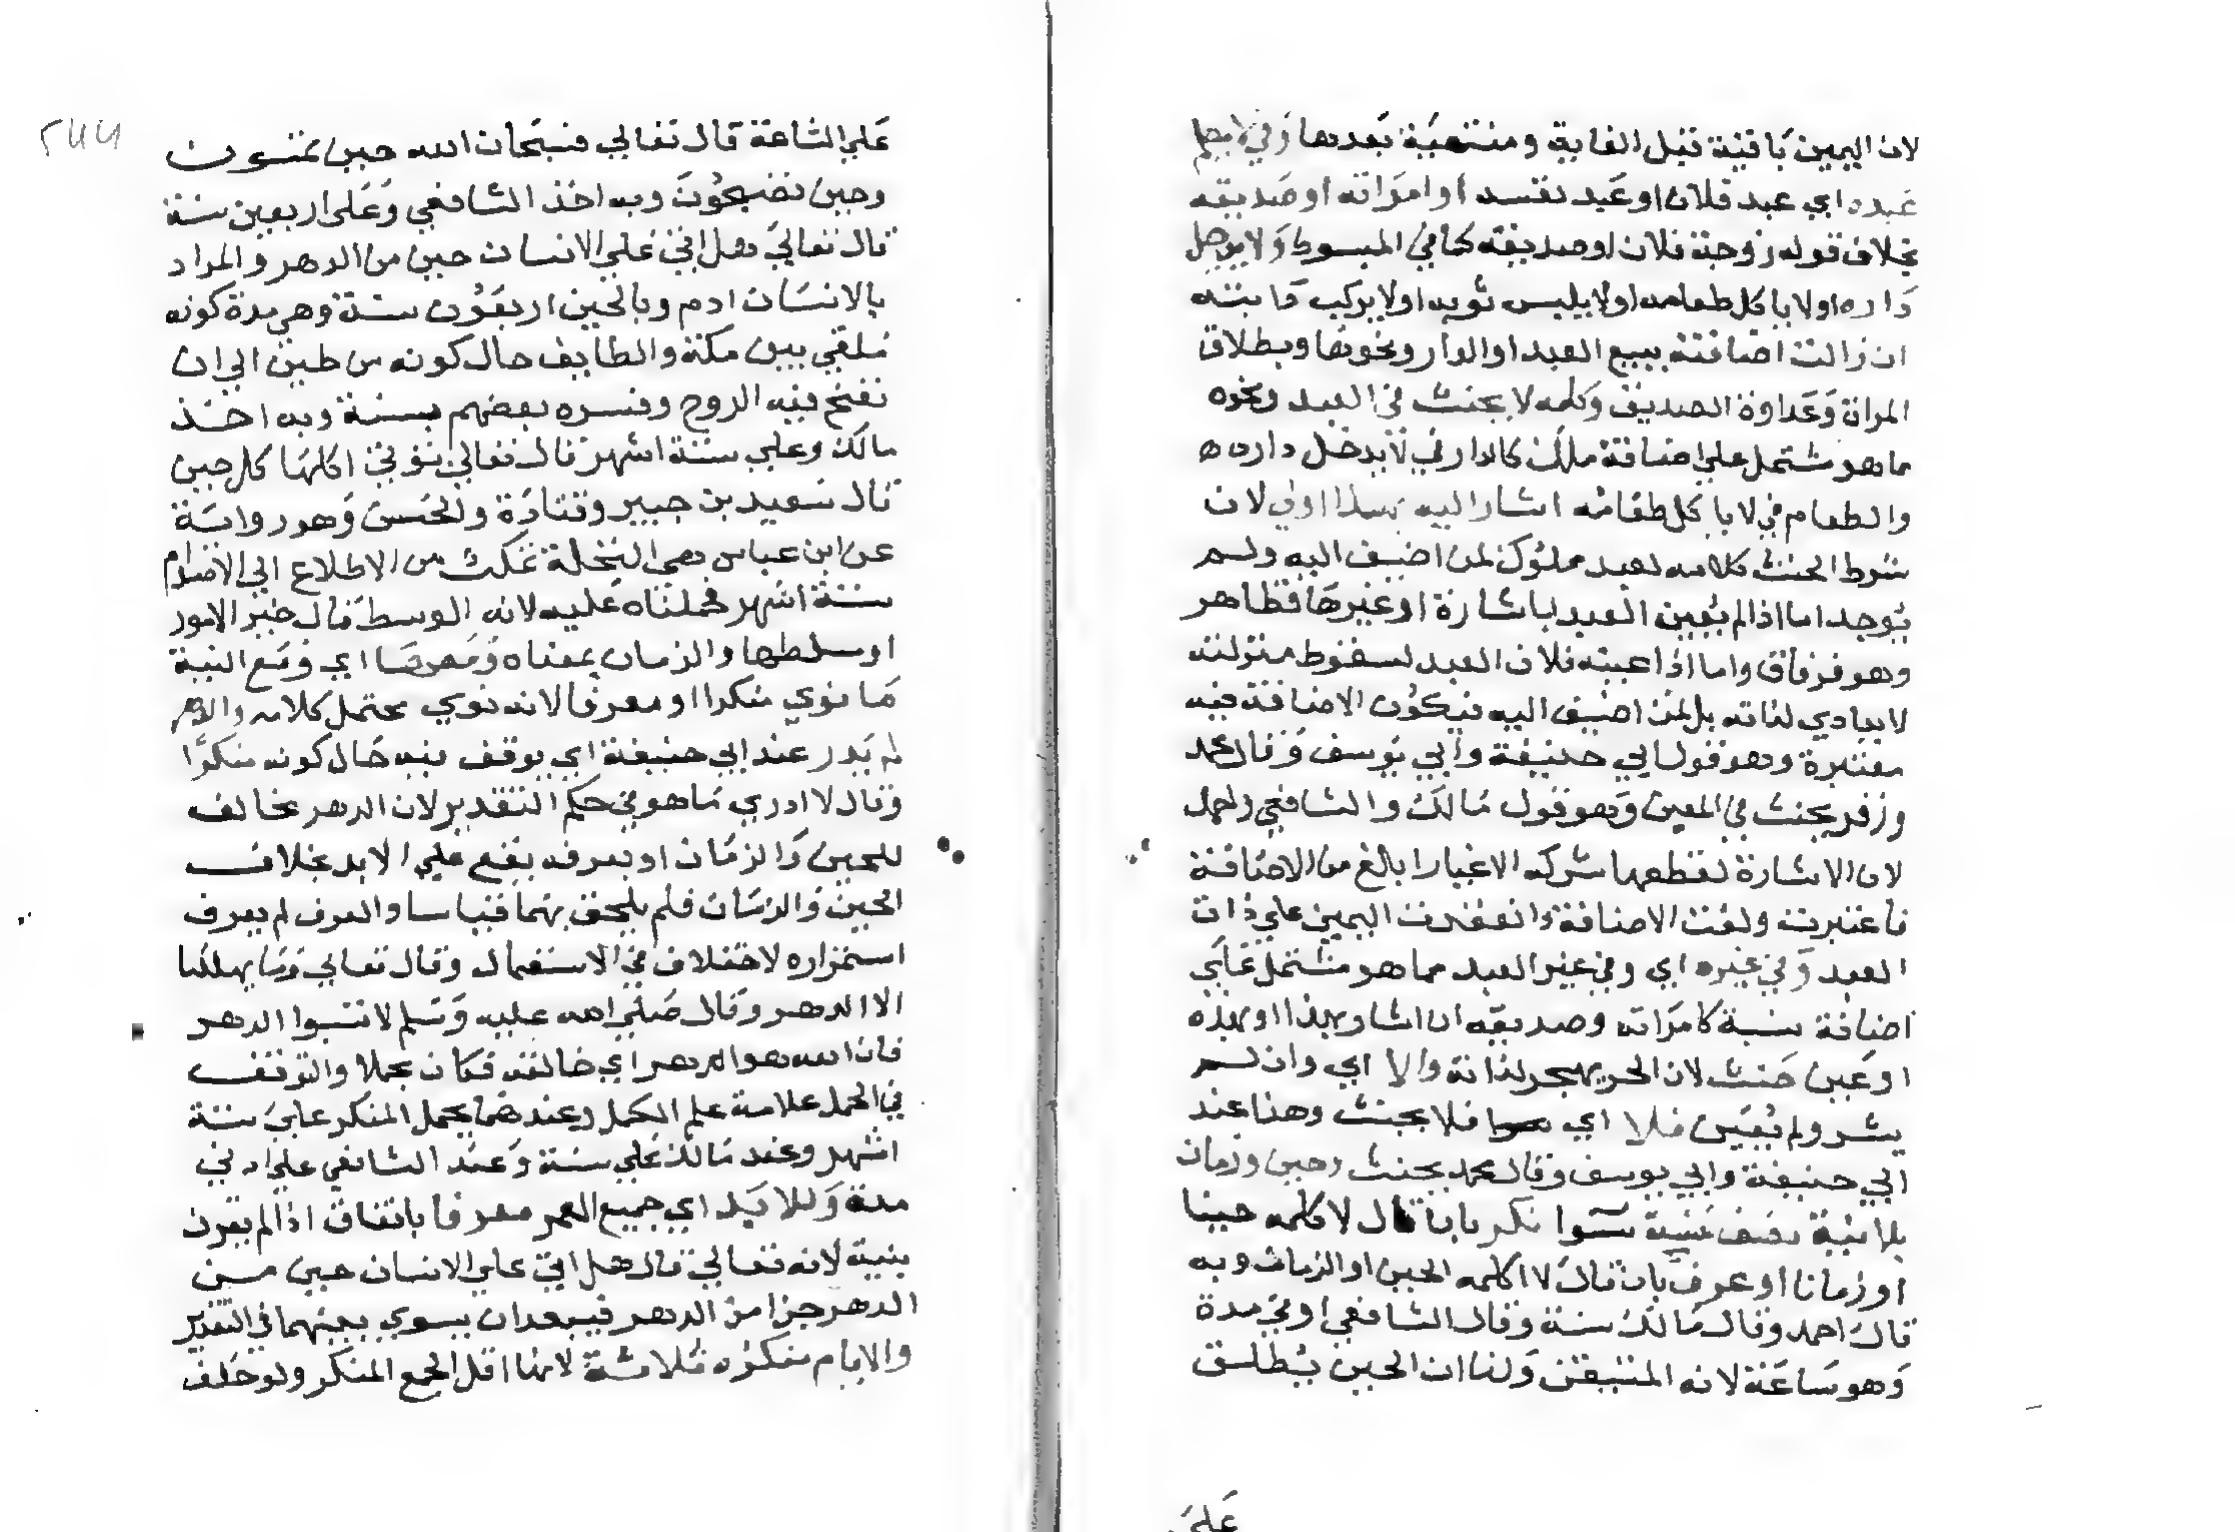 لان اليمين باقية قبل الغاية ومنتهية بعدها وفي لا يكلم
عبده اي عبد فلان او عبد نفسه او امراته او صديقه
بخلاف قوله زوجة فلان او صديقه كما في المبسوط ولا يدخل
داره او لا ياكل طعامه او لا يلبس ثوبه او لا يركب دابته
ان زالت اضافته ببيع العبد او الدار ونحوها وبطلاق
المراة وعداوة الصديق وكلمه لا يحنث في العبد ونحوه
مما هو مشتمل علي اضافة ملك كالدار في لا يدخل داره ه
والطعام في لا ياكل طعامه اشار اليه بهذا اولي لان
شرط الحنث كلامه لعبد مملوك لمن اضيف اليه ولم
يوجد اما اذا لم يعين العبد باشارة او غيرها فظاهر
وهو فزفاق واما اذا عينه فلان العبد لسقوط منزلته
لا يبادي لذاته بل لمن اضيف اليه فيكون الاضافة فيه
معتبرة وهو قول ابي حنيفة وابي يوسف وقال محمد
وزفر يحنث في المعين وهو قول مالك والشافعي واحمد
لان الاشارة لقطعها شركه الاغيار ابالغ من الاضافة
فاعتبرت ولغت الاضافة وانعقدت اليمين علي ذات
العبد وفي غيره اي وفي غير العبد مما هو مشتمل علي
اضافة نسبة كامراته وصديقه ان اشار بهذا او بهذه
او عين حنث لان الحر يهجر لذاته والا اي وان لم
يشر ولم يعين فلا اي فلا يحنث وهذا عند
ابي حنيفة وابي يوسف وقال محمد يحنث وحين وزمان
بلا نية نصف سنة سوا نكر بان قال لا اكلمه حينا
او زمانا او عرف بان قال لا اكلمه الحين او الزمان وبه
قال احمد وقال مالك سنة وقال الشافعي ادني مدة
وهو ساعة لانه المتيقن ولنا ان الحين يطلق
علي
٢٧٧
علي الساعة قال تعالي فسبحان الله حين تمسون
وحين تصبحون وبه اخذ الشافعي وعلي اربعين سنة
قال تعالي هل اتي علي الانسان حين من الدهر والمراد
بالانسان ادم وبالحين اربعون سنة وهي مدة كونه
ملقي بين مكة والطايف حال كونه من طين الي ان
نفخ فيه الروح وفسره بعضهم بسنة وبه اخذ
مالك وعلي ستة اشهر قال تعالي توتي اكلها كل حين
قال سعيد بن جبير وقتادة والحسن وهو رواية
عن ابن عباس هي النخلة تمكث من الاطلاع الي الاضرام
ستة اشهر فحملناه عليه لانه الوسط قال خير الامور
اوسلطها والزمان بمعناه ومعها اي ومع النية
ما نوي منكرا او معرفا لانه نوي محتمل كلامه والدهر
لم يدر عند ابي حنيفة اي يوقف فيه حال كونه منكرا
وقال لا ادري ما هو في حكم التقدير لان الدهر يخالف
للحين والزمان او بعرفه يقع علي الابد بخلاف
الحين والزمان فلم يلحق بهما قياسا والعرف لم يعرف
استمراره لاختلاف في الاستعمال وقال تعالي وما يهلكنا
الا الدهر وقال صلي الله عليه وسلم لا تسبوا الدهر
فان الله هو الدهر اي خالقه فكان مجملا والتوقف
في المجمل علامة علم الكمل وعندهما يحمل المنكر علي ستة
اشهر وعند مالك علي سنة وعند الشافعي علي ادني
مدة وللابد اي جميع العمر معرفا باتفاق اذا لم يقرن
بنية لانه تعالي قال هل اتي علي الانسان حين من
الدهر جزا من الدهر فيبعد ان يسوي بينهما في التقدير
والايام منكره ثلاثة لانها اقل الجمع المنكر ولو حلف